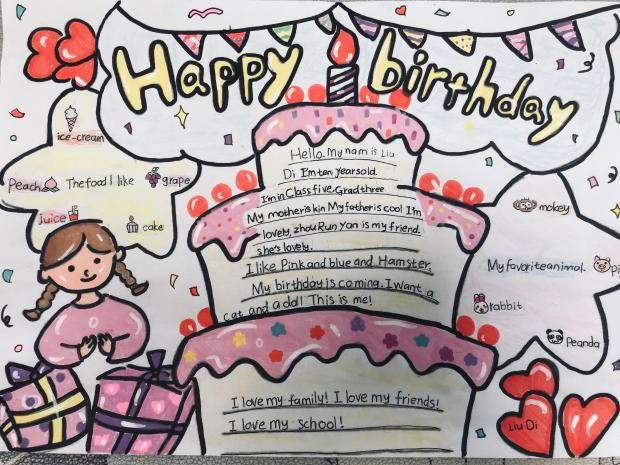 Happy birthday
ice-cream
Peach The food I like grape
juice
cake
Hello. My nam is Liu
Di I'm ten year sold.
I'm in Class five. Grad three
My mother is kin My father is cool I'm
lovely, zhou Run Yan is my friend.
she's lovely.
I like Pink and blue and Hamster.
My birthday is coming. I want a
cat and a doll This is me!
mokey
My favorite animal.
pi
rabbit
Peanda
I love my family! I love my friends!
I love my school!
Liu Di